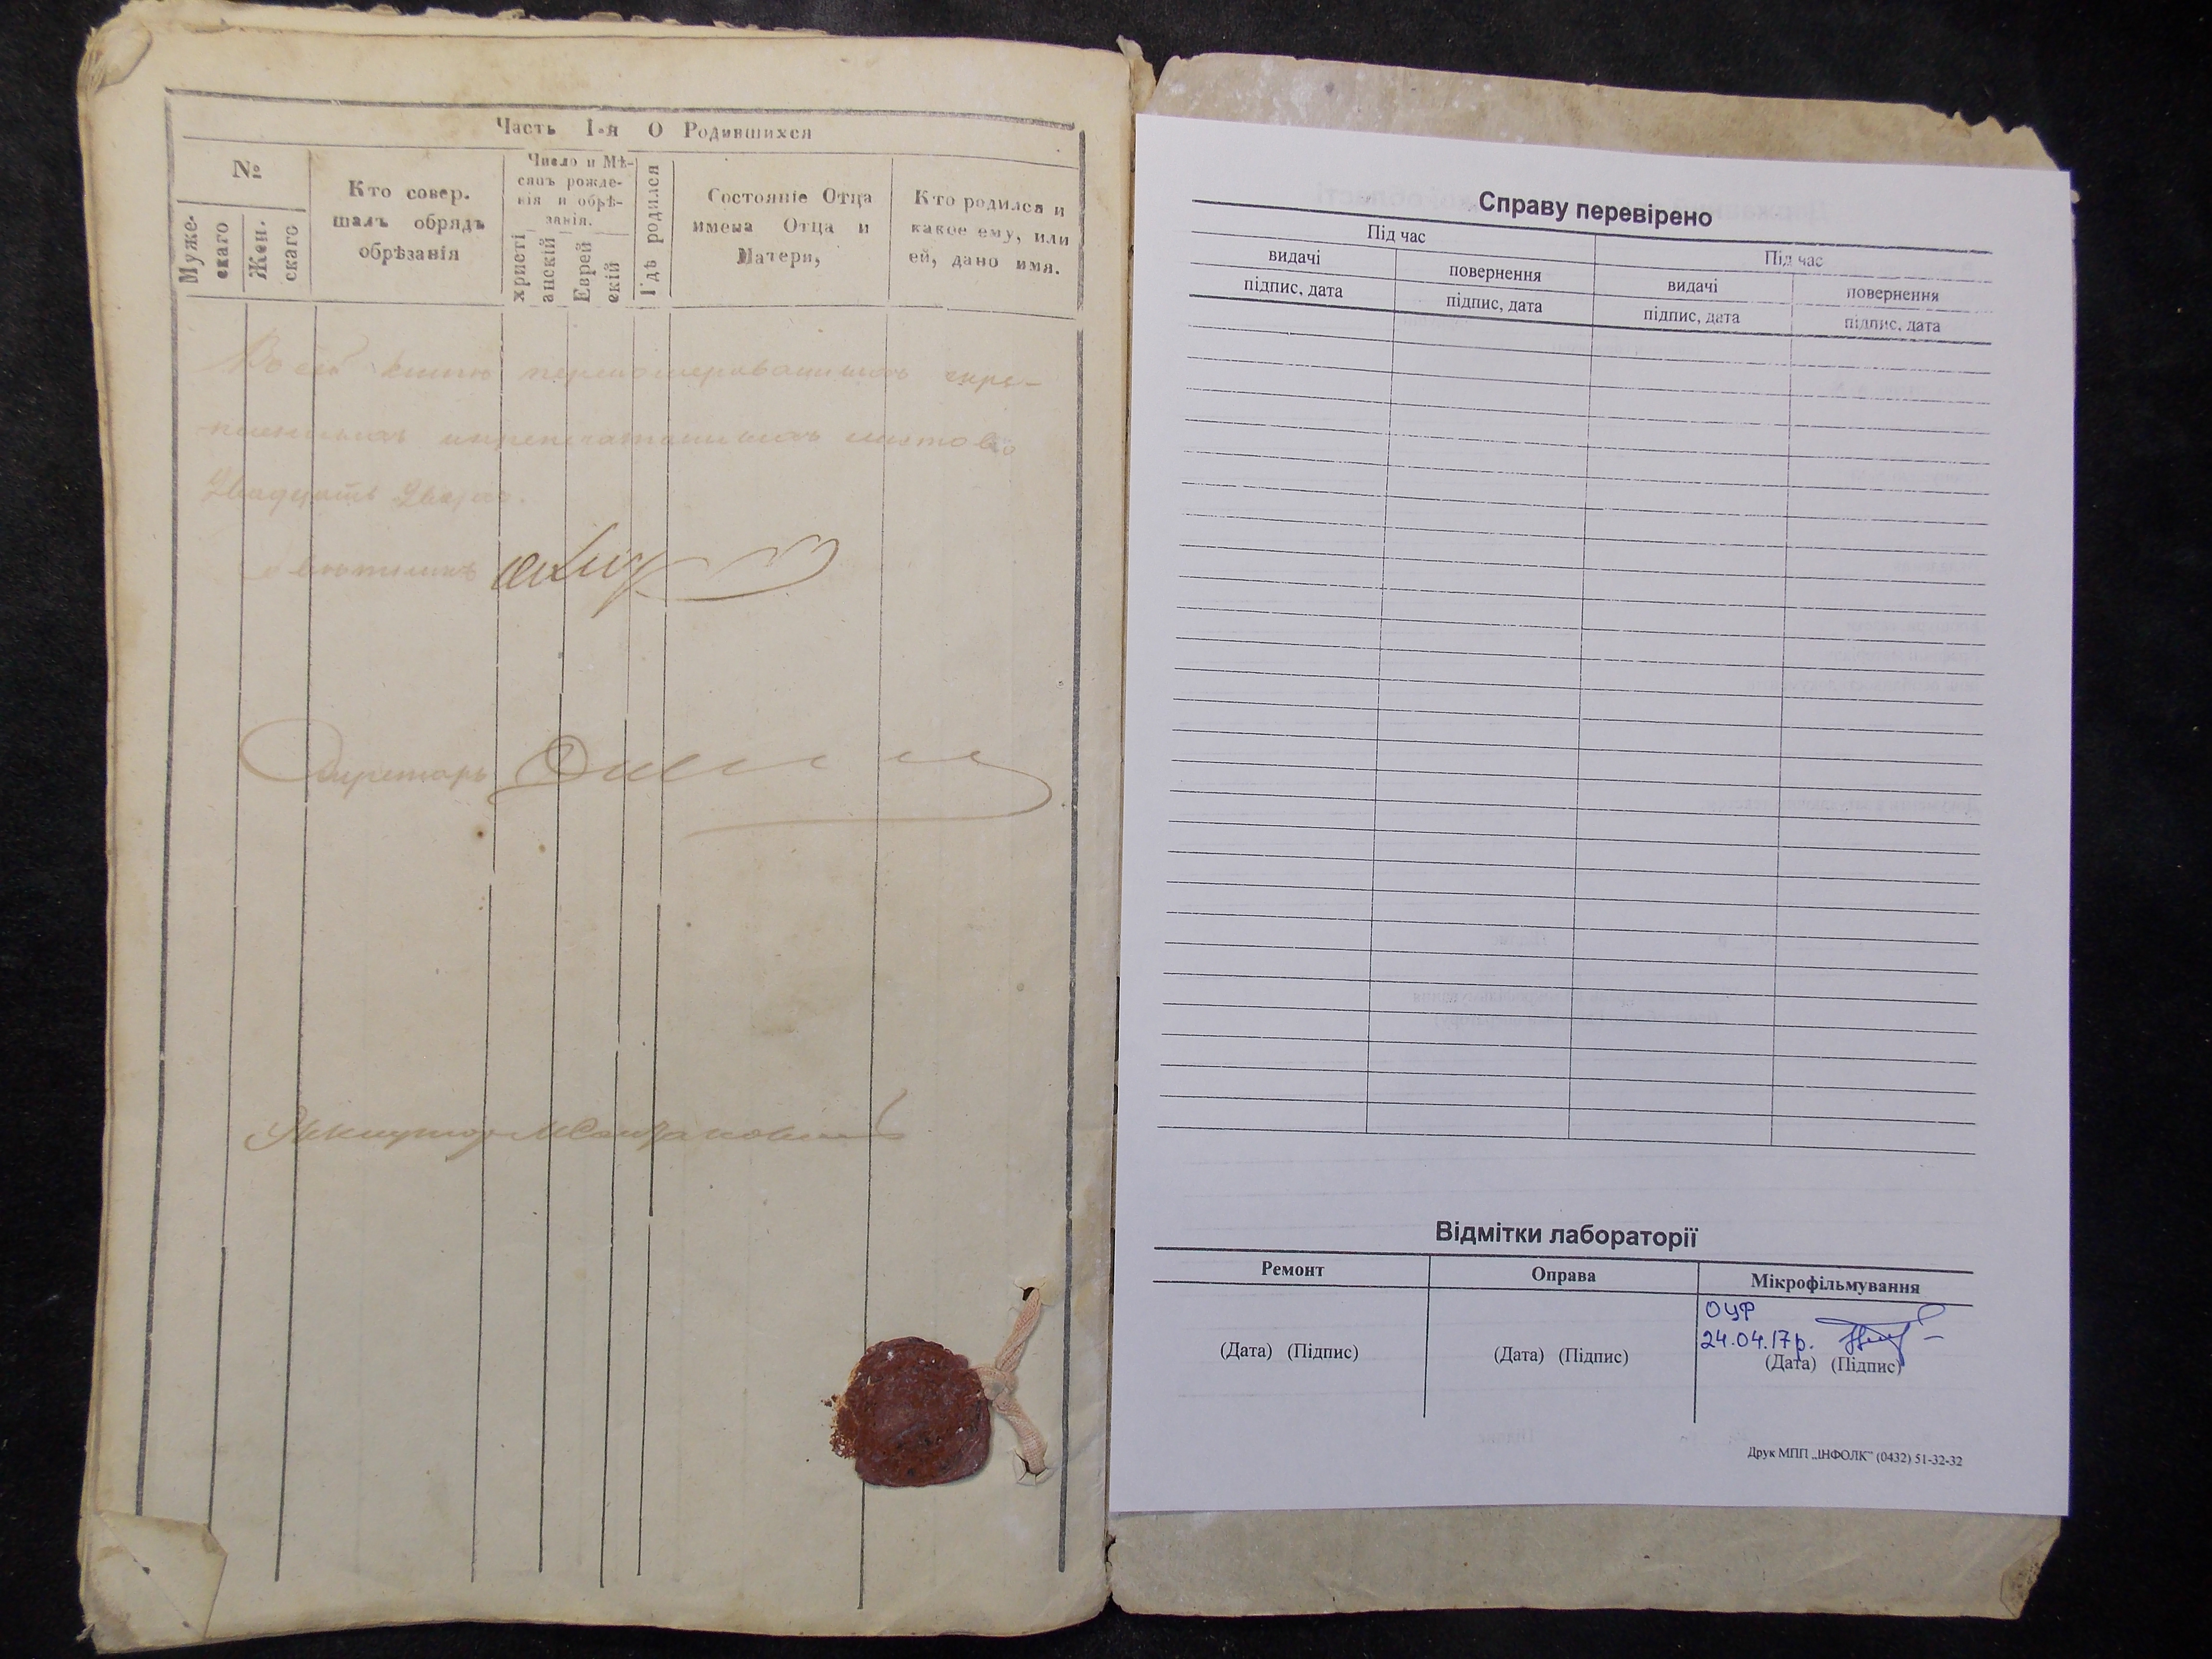 Часть I-я О Родившихся
№
Муже-
скаго
Жен.
скаго
Кто совер.
шалъ обрядъ
обрѣзанія
Число и Мѣ-
сяцъ рожде-
нія и обрѣ-
занія.
христі
анскій
Еврей
скій
Гдѣ родился
Состояніе Отца
имена Отца и
Матери,
Кто родился и
какое ему, или
ей, дано имя.
Въ сей книгѣ перенумерованныхъ скрѣ-
листовъ
двадцать
Секретарь
Справу перевірено
Під час
Під час
видачі
повернення
видачі
повернення
підпис, дата
підпис, дата
підпис, дата
підпис, дата
Відмітки лабораторії
Ремонт
Оправа
Мікрофільмування
ОЦФ
24.04.17р.
(Дата) (Підпис)
(Дата) (Підпис)
(Дата) (Підпис)
Друк МПП „ІНФОЛК" (0432) 51-32-32